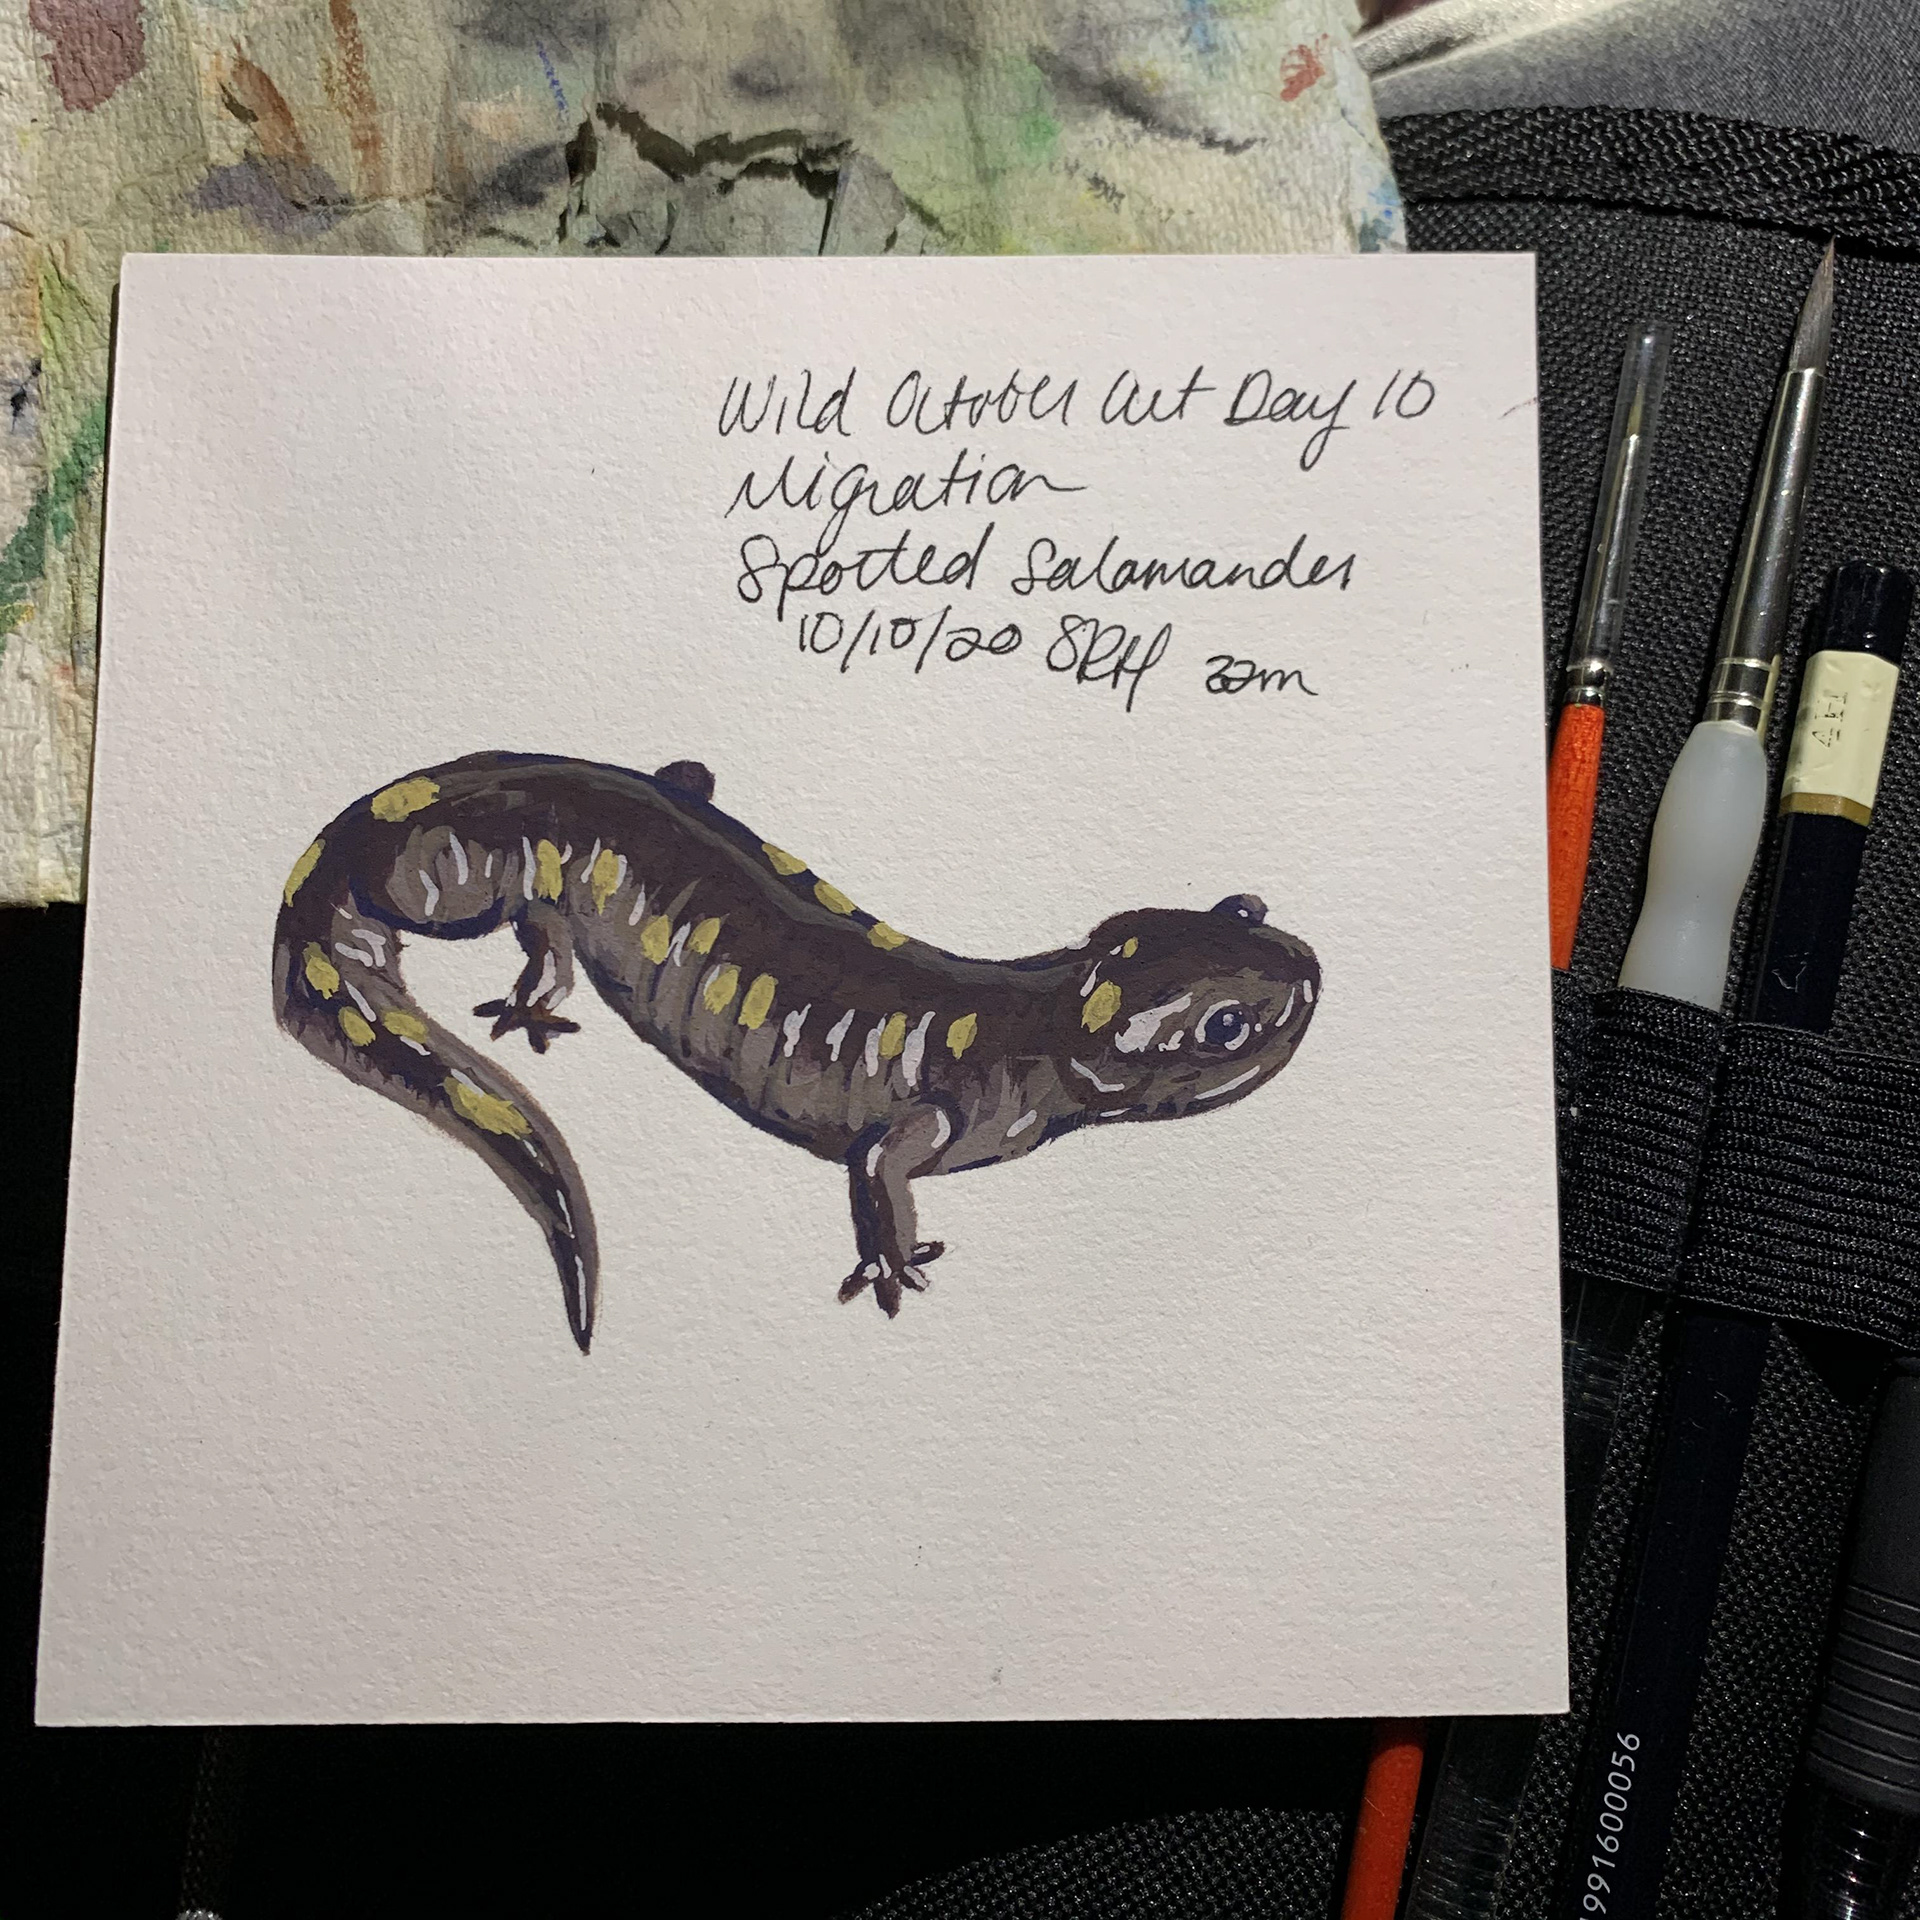 Wild October Art Day 10
Migration
Spotted Salamander
10/10/20 SRH 22m
4H
991600056